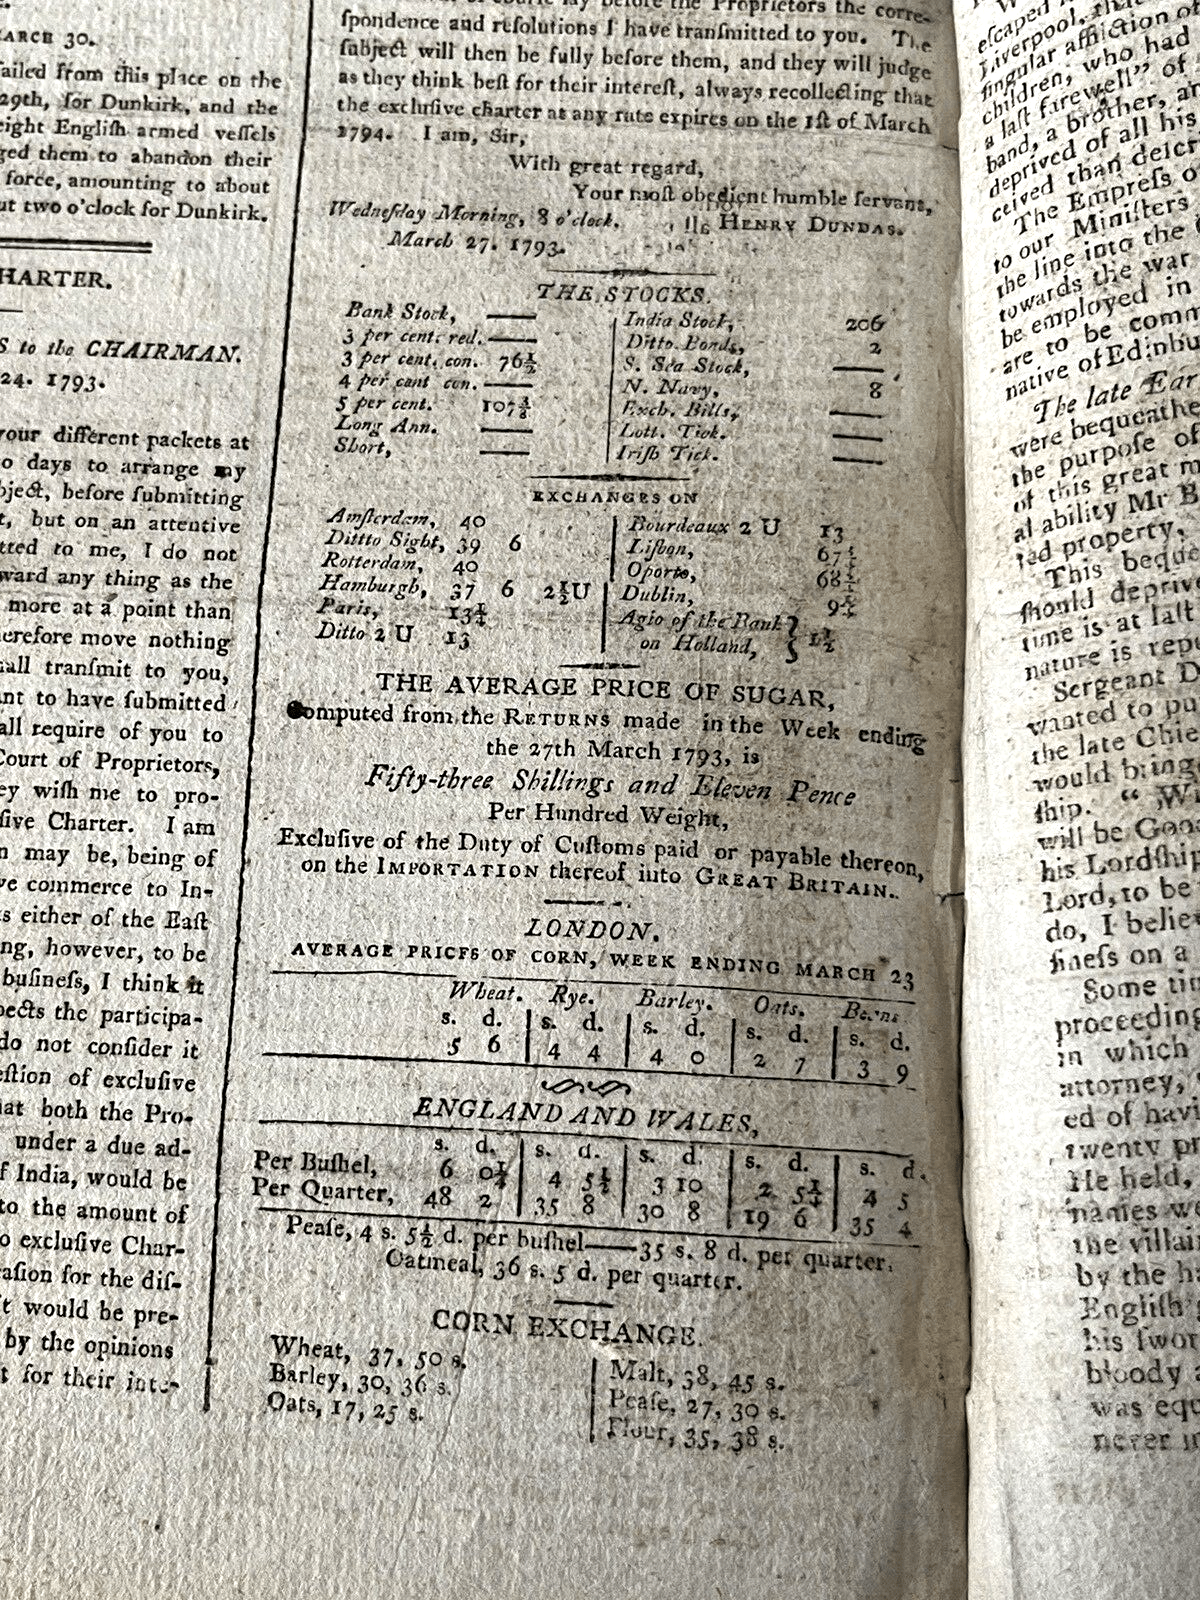 ARCH 30.
ailed from this place on the
29th, for Dunkirk, and the
eight Engliſh armed veſſels
ged them to abandon their
force, amounting to about
ut two o'clock for Dunkirk.
HARTER.
S to the CHAIRMAN.
24. 1793.
your different packets at
o days to arrange my
bject, before ſubmitting
t, but on an attentive
tted to me, I do not
ward any thing as the
more at a point than
herefore move nothing
hall tranſmit to you,
ant to have ſubmitted
all require of you to
Court of Proprietors,
ey wiſh me to pro-
ſive Charter. I am
n may be, being of
ve commerce to In-
s either of the Eaſt
ng, however, to be
buſineſs, I think it
pects the participa-
do not conſider it
eſtion of excluſive
hat both the Pro-
under a due ad-
f India, would be
to the amount of
o excluſive Char-
caſion for the diſ-
t would be pre-
by the opinions
t for their inte-
before the Proprietors the corre-
ſpondence and reſolutions I have tranſmitted to you. The
ſubject will then be fully before them, and they will judge
as they think beſt for their intereſt, always recollecting that
the excluſive charter at any rate expires on the 1ſt of March
1794. I am, Sir,
With great regard,
Your moſt obedient humble ſervant,
Wedneſday Morning, 8 o'clock, HENRY DUNDAS.
March 27. 1793.
THE STOCKS.
Bank Stock, ——
3 per cent. red. ——
3 per cent. con. 76½
4 per cent con. ——
5 per cent. 107⅜
Long Ann. ——
Short, ——
India Stock, 206
Ditto Bonds, 2
S. Sea Stock, ——
N. Navy, 8
Exch. Bills, ——
Lott. Tick. ——
Iriſh Tick. ——
EXCHANGES ON
Amſterdam, 40
Dittto Sight, 39 6
Rotterdam, 40
Hamburgh, 37 6 2½U
Paris, 13¼
Ditto 2 U 13
Bourdeaux 2 U 13
Liſbon, 67½
Oporto, 68½
Dublin, 9½
Agio of the Bank
on Holland, } 1½
THE AVERAGE PRICE OF SUGAR,
Computed from the RETURNS made in the Week ending
the 27th March 1793, is
Fifty-three Shillings and Eleven Pence
Per Hundred Weight,
Excluſive of the Duty of Cuſtoms paid or payable thereon,
on the IMPORTATION thereof into GREAT BRITAIN.
LONDON.
AVERAGE PRICES OF CORN, WEEK ENDING MARCH 23
Wheat. Rye. Barley. Oats. Beans
s. d. | s. d. | s. d. | s. d. | s. d.
5 6 | 4 4 | 4 0 | 2 7 | 3 9
ENGLAND AND WALES,
s. d. | s. d. | s. d. | s. d. | s. d.
Per Buſhel, 6 0¼ | 4 5½ | 3 10 | 2 5¼ | 4 5
Per Quarter, 48 2 | 35 8 | 30 8 | 19 6 | 35 4
Peaſe, 4 s. 5½ d. per buſhel——35 s. 8 d. per quarter.
Oatmeal, 36 s. 5 d. per quarter.
CORN EXCHANGE.
Wheat, 37, 50 s.
Barley, 30, 36 s.
Oats, 17, 25 s.
Malt, 38, 45 s.
Peaſe, 27, 30 s.
Flour, 35, 38 s.
eſcaped
Liverpool,
ſingular affliction of
children, who had
a laſt farewell" of
band, a brother,
deprived of all his
ceived than
The Empreſs o
to our Miniſters
the line into the
towards the war
be employed in
are to be comm
native of Edinbu
The late Ear
were bequeathe
the purpoſe of
of this great m
al ability Mr B
ted property,
This beque
ſhould depriv
time is at laſt
nature is repe
Sergeant D
wanted to pu
the late Chie
would bring
ſhip. " Wi
will be Goo
his Lordſhip
Lord, to be
do, I believ
ſineſs on a
Some tim
proceeding
in which
attorney,
ed of havi
twenty pr
He held,
names we
the villain
by the ha
Engliſh
his ſwor
bloody a
was equ
never in